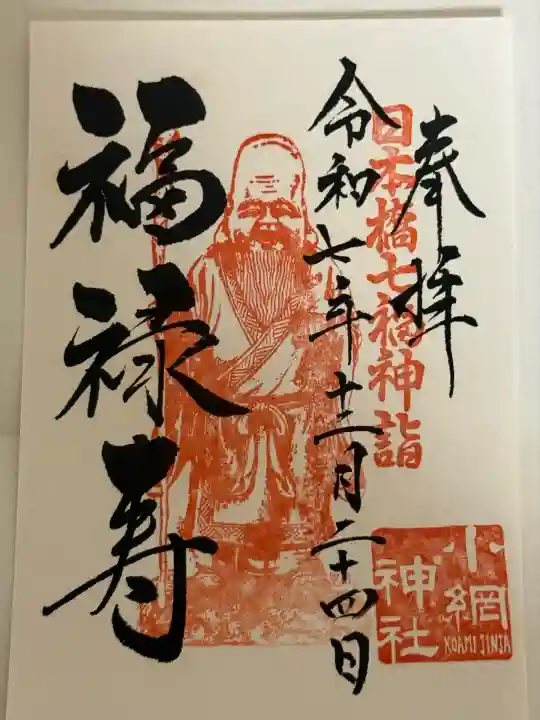 奉拝
日本橋七福神詣
令和七年十二月二十四日
福禄寿
小網
神社
KOAMI JINJA